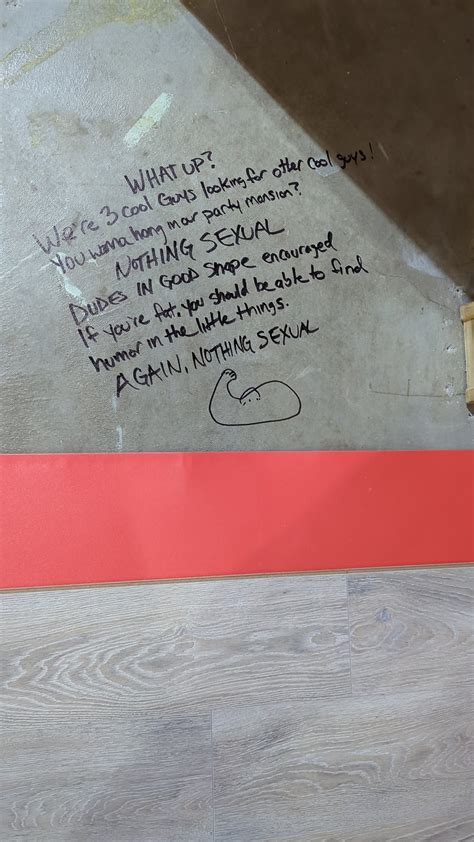 WHAT UP?
We're 3 cool Guys looking for other cool guys!
You wanna hang in our party mansion?
NOTHING SEXUAL
DUDES IN GOOD Shape encouraged
If you're fat, you should be able to find
humor in the little things.
AGAIN, NOTHING SEXUAL